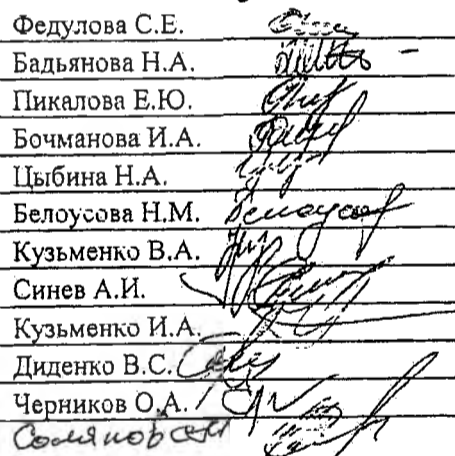 Федулова С.Е.
Бадьянова Н.А.
Пикалова Е.Ю.
Бочманова И.А.
Цыбина Н.А.
Белоусова Н.М.
Кузьменко В.А.
Синев А.И.
Кузьменко И.А.
Диденко В.С.
Черников О.А.